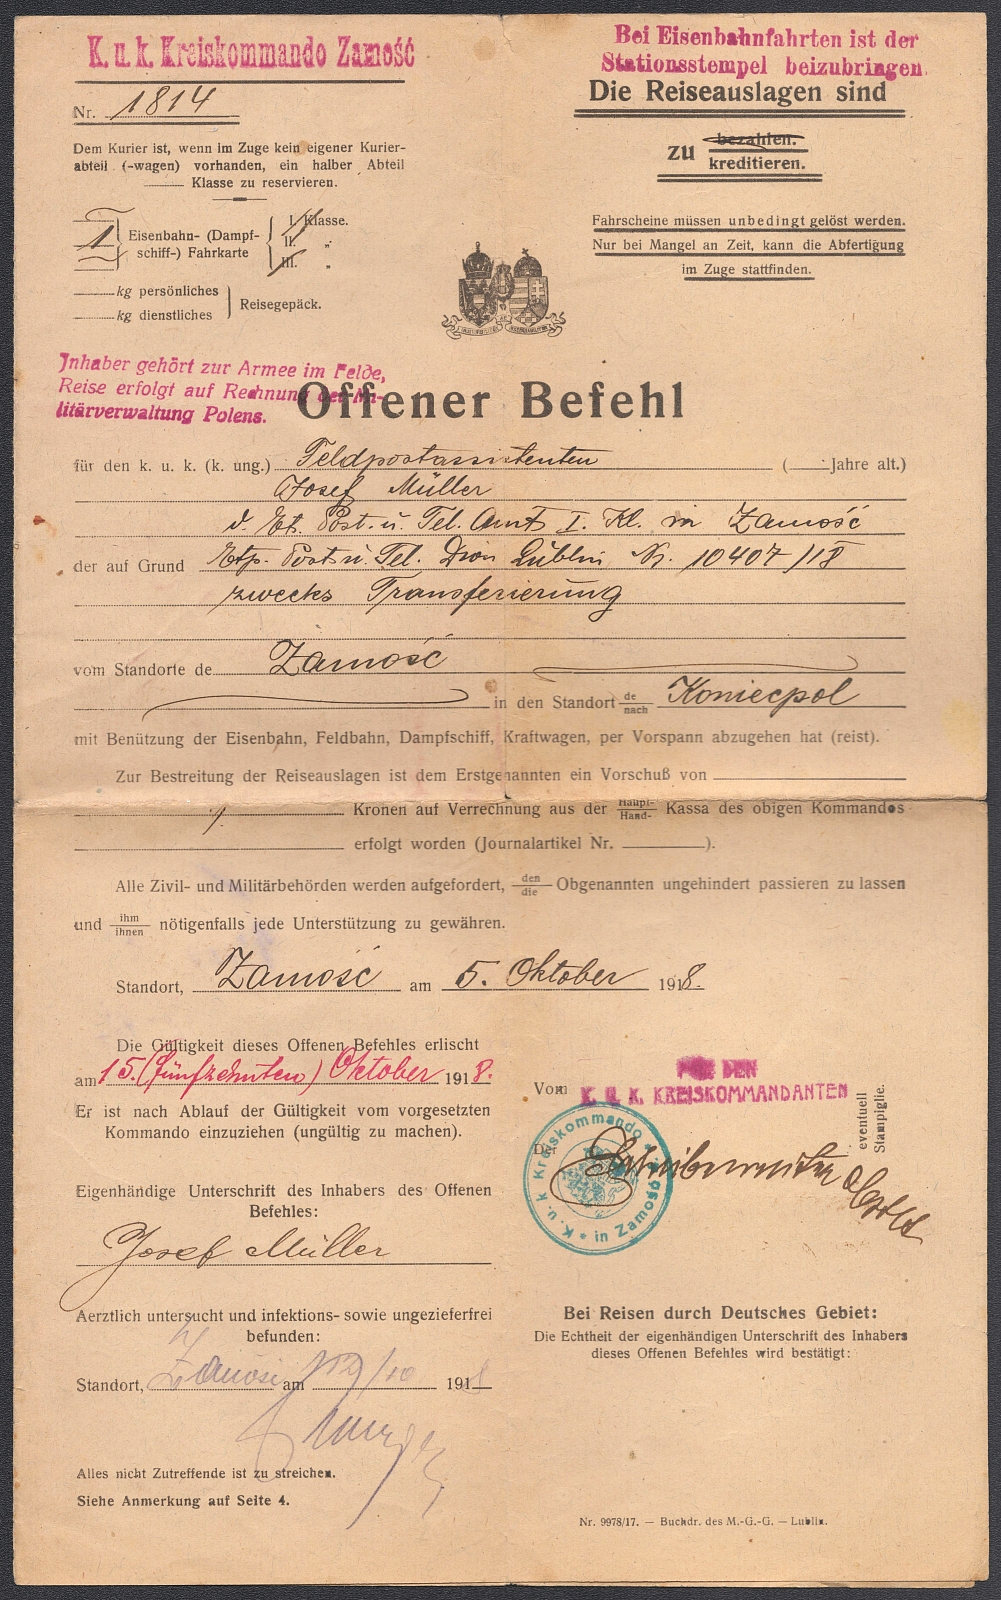 K. u. k. Kreiskommando Zamość
Nr. 1814
Dem Kurier ist, wenn im Zuge kein eigener Kurier-
abteil (-wagen) vorhanden, ein halber Abteil
Klasse zu reservieren.
1 Eisenbahn- (Dampf-
schiff-) Fahrkarte
I. Klasse.
II. „
III. „
kg persönliches
kg dienstliches
Reisegepäck.
Bei Eisenbahnfahrten ist der
Stationsstempel beizubringen.
Die Reiseauslagen sind
zu bezahlen.
kreditieren.
Fahrscheine müssen unbedingt gelöst werden.
Nur bei Mangel an Zeit, kann die Abfertigung
im Zuge stattfinden.
Inhaber gehört zur Armee im Felde,
Reise erfolgt auf Rechnung der Mi-
litärverwaltung Polens.
Offener Befehl
für den k. u. k. (k. ung.) Feldpostassistenten ( Jahre alt.)
Josef Müller
d. Et. Post- u. Tel. Amt I. Kl. in Zamość
der auf Grund Etp. Post u. Tel. Dion Lublin Nr. 10407/18
zwecks Transferierung
vom Standorte de Zamość
in den Standort de
nach Koniecpol
mit Benützung der Eisenbahn, Feldbahn, Dampfschiff, Kraftwagen, per Vorspann abzugehen hat (reist).
Zur Bestreitung der Reiseauslagen ist dem Erstgenannten ein Vorschuß von
Kronen auf Verrechnung aus der Haupt-
Hand- Kassa des obigen Kommandos
erfolgt worden (Journalartikel Nr. ).
Alle Zivil- und Militärbehörden werden aufgefordert, den
die Obgenannten ungehindert passieren zu lassen
und ihm
ihnen nötigenfalls jede Unterstützung zu gewähren.
Standort, Zamość am 5. Oktober 1918.
Die Gültigkeit dieses Offenen Befehles erlischt
am 15. (fünfzehnten) Oktober 1918.
Er ist nach Ablauf der Gültigkeit vom vorgesetzten
Kommando einzuziehen (ungültig zu machen).
Eigenhändige Unterschrift des Inhabers des Offenen
Befehles:
Josef Müller
Aerztlich untersucht und infektions- sowie ungezieferfrei
befunden:
Standort, Zamość am /10 1918
Alles nicht Zutreffende ist zu streichen.
Siehe Anmerkung auf Seite 4.
Vom
FÜR DEN
K. U. K. KREISKOMMANDANTEN
eventuell
Stampiglie.
Der
K. u. k. Kreiskommando * in Zamość *
Bei Reisen durch Deutsches Gebiet:
Die Echtheit der eigenhändigen Unterschrift des Inhabers
dieses Offenen Befehles wird bestätigt:
Nr. 9978/17. — Buchdr. des M.-G.-G. — Lublin.